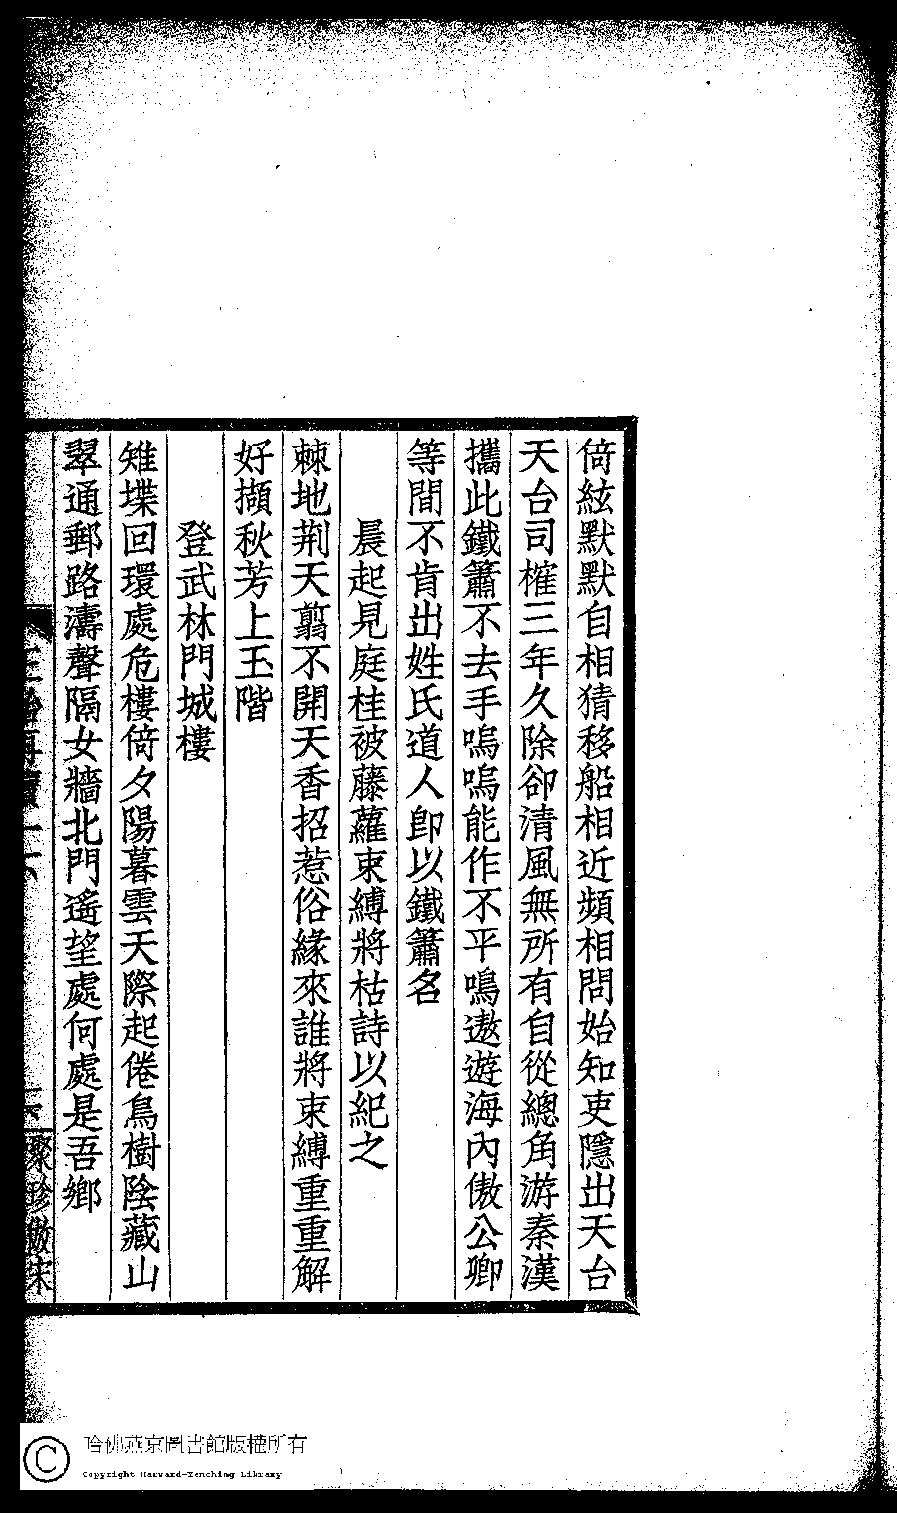 倚絃默默自相猜移船相近頻相問始知吏隱出天台
天台司榷三年久除卻清風無所有自從總角游秦漢
攜此鐵簫不去手嗚嗚能作不平鳴遨遊海內傲公卿
等間不肯出姓氏道人卽以鐵簫名
晨起見庭桂被藤蘿束縛將枯詩以紀之
棘地荆天翦不開天香招惹俗緣來誰將束縛重重解
好擷秋芳上玉階
登武林門城樓
雉堞回環處危樓倚夕陽暮雲天際起倦鳥樹陰藏山
翠通郵路濤聲隔女牆北門遙望處何處是吾鄉
聚珍倣宋
哈佛燕京圖書館版權所有
Copyright Harvard-Yenching Library